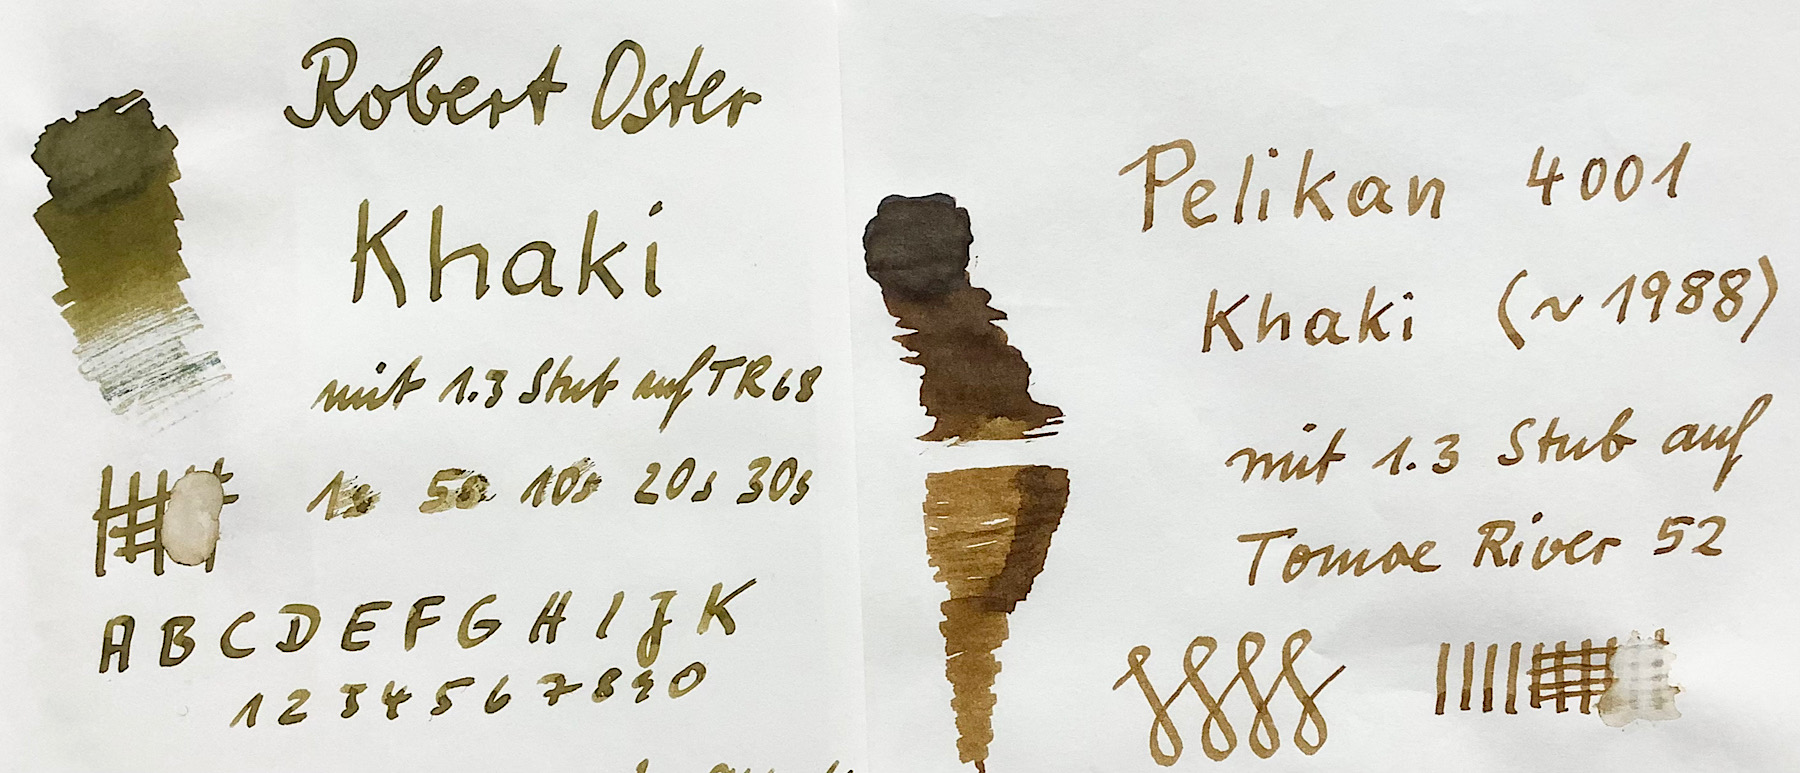 Robert Oster
Khaki
mit 1.3 Stub auf TR68
1s 5s 10s 20s 30s
A B C D E F G H I J K
1 2 3 4 5 6 7 8 9 0
Pelikan 4001
Khaki (~1988)
mit 1.3 Stub auf
Tomoe River 52